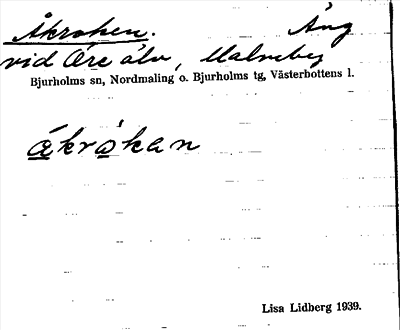 Åkroken. Äng
vid Öre älv, Malmeby
Bjurholms sn, Nordmaling o. Bjurholms tg, Västerbottens l.
ákrókan
Lisa Lidberg 1939.